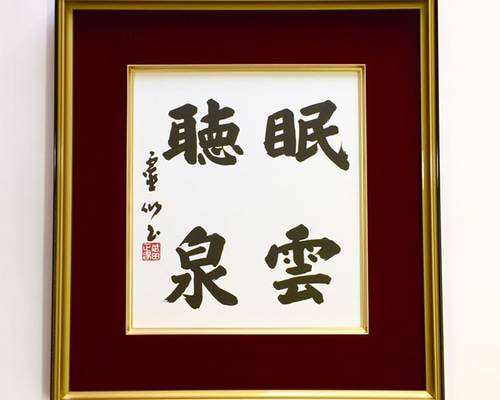 眠雲
聴泉